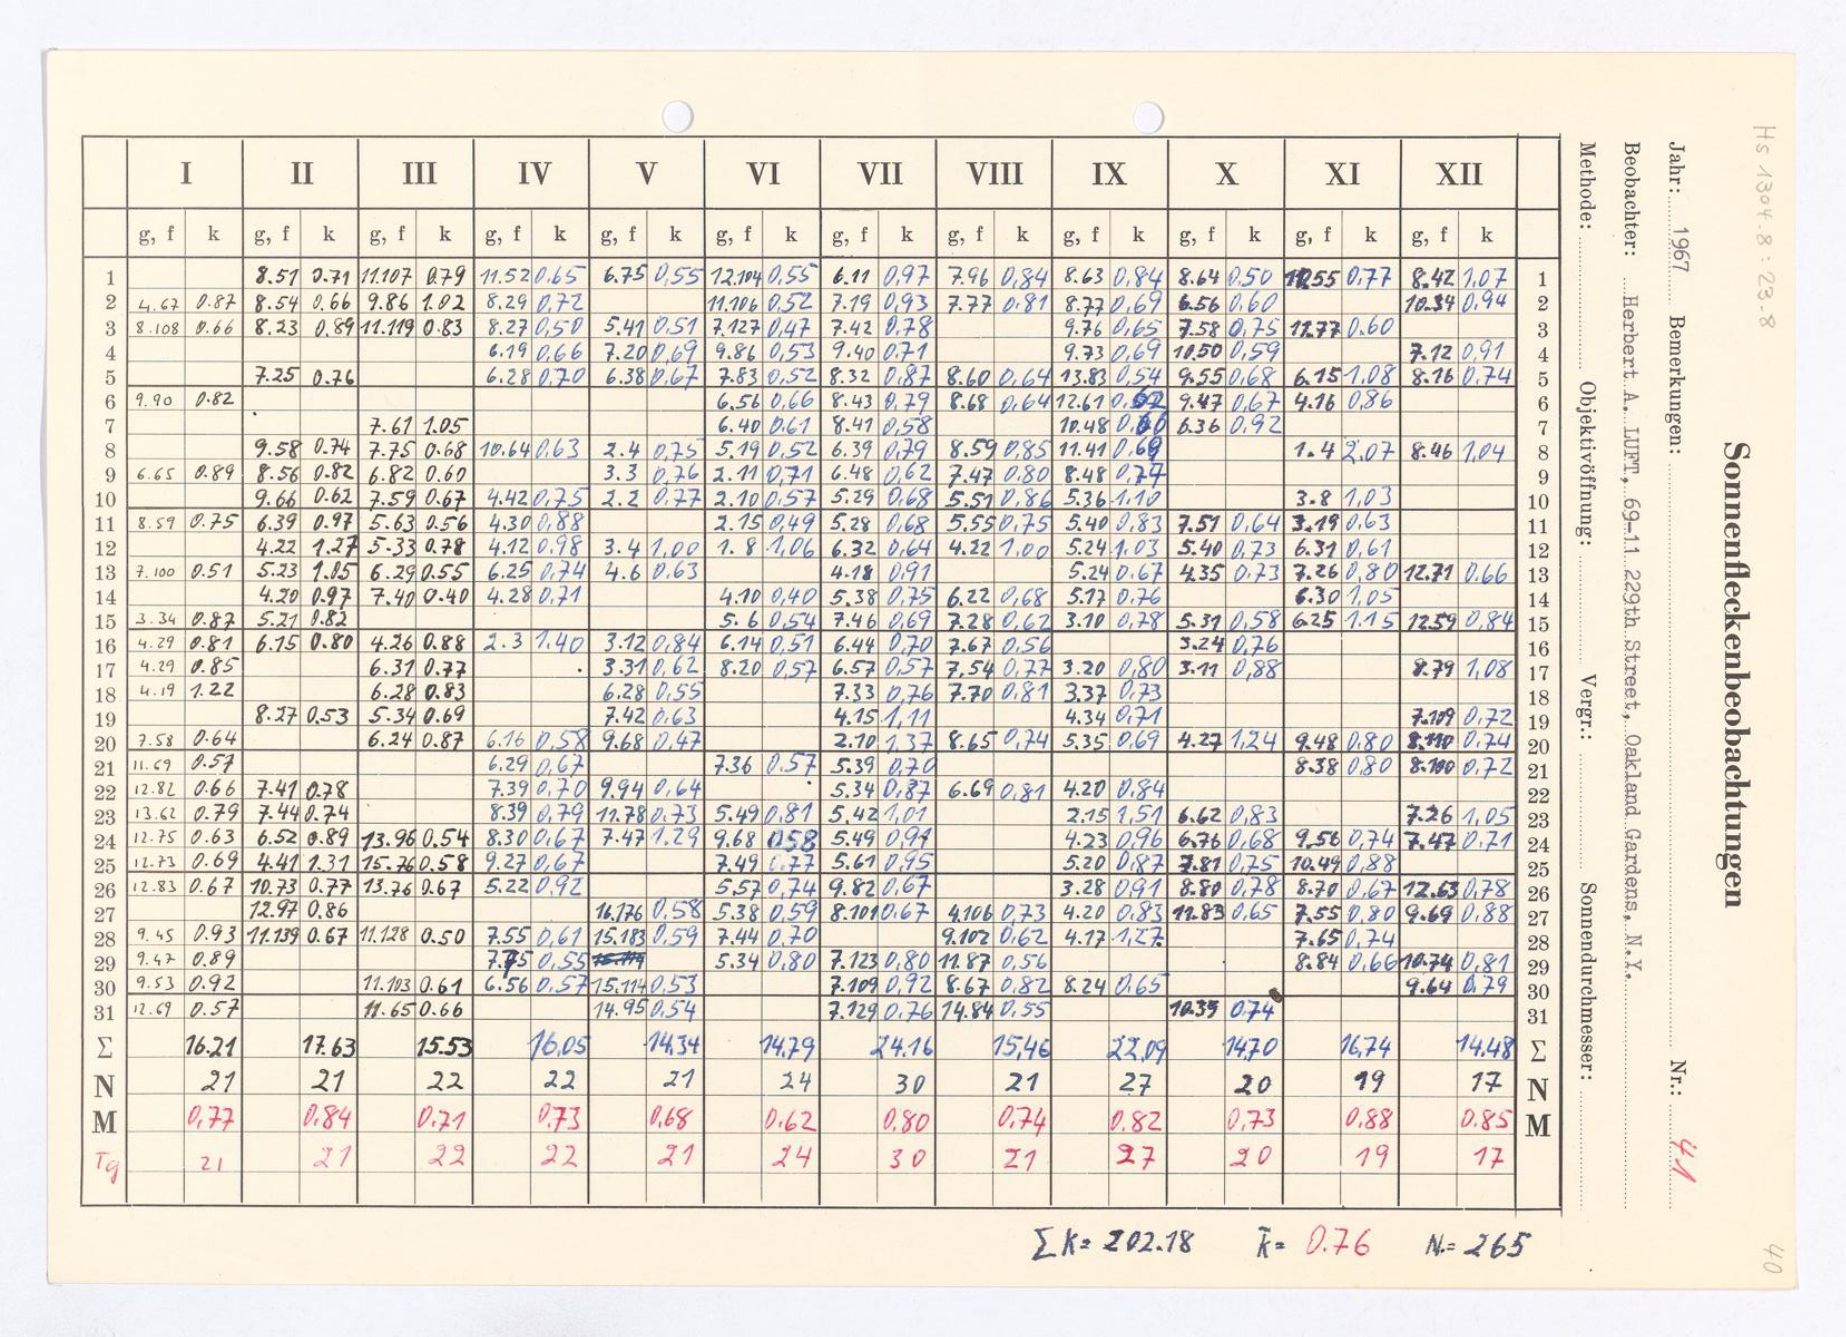 Sonnenfleckenbeobachtungen
Hs 1304.8 : 23.8
Jahr: 1967 Bemerkungen: Nr.: 41
Beobachter: Herbert A. LUFT, 69-11 229th Street, Oakland Gardens, N.Y.
Methode: Objektivöffnung: Vergr.: Sonnendurchmesser:
I II III IV V VI VII VIII IX X XI XII
g, f k g, f k g, f k g, f k g, f k g, f k g, f k g, f k g, f k g, f k g, f k g, f k
1 8.51 0.71 11.107 0.79 11.52 0,65 6.75 0,55 12.104 0,55 6.11 0,97 7.96 0,84 8.63 0,84 8.64 0,50 0,77 8.42 1,07 1
2 4.67 0.87 8.54 0.66 9.86 1.02 8.29 0,72 11.106 0,52 7.19 0,93 7.77 0,81 8.77 0,69 6.56 0,60 10.34 0,94 2
3 8.108 0.66 8.23 0.89 11.119 0.83 8.27 0,50 5.41 0,51 7.127 0,47 7.42 0,78 9.76 0,65 7.58 0,75 11.77 0.60 3
4 6.19 0,66 7.20 0,69 9.86 0,53 9.40 0.71 9.73 0,69 10.50 0,59 7.12 0,91 4
5 7.25 0.76 6.28 0,70 6.38 0,67 7.83 0,52 8.32 0,87 8.60 0,64 13.83 0,54 9.55 0,68 6.15 1,08 8.16 0,74 5
6 9.90 0.82 6.56 0,66 8.43 0,79 8.68 0,64 12.61 9.47 0,67 4.16 0,86 6
7 7.61 1.05 6.40 0,61 8.41 0,58 10.48 6.36 0,92 7
8 9.58 0.74 7.75 0.68 10.64 0,63 2.4 0,75 5.19 0,52 6.39 0,79 8.59 0,85 11.41 0,69 1.4 2,07 8.46 1,04 8
9 6.65 0.89 8.56 0.82 6.82 0.60 3.3 0,76 2.11 0,71 6.48 0,62 7.47 0,80 8.48 0,77 9
10 9.66 0.62 7.59 0.67 4.42 0,75 2.2 0,77 2.10 0,57 5.29 0,68 5.51 0,86 5.36 1.10 3.8 1,03 10
11 8.59 0.75 6.39 0.97 5.63 0.56 4.30 0,88 2.15 0,49 5.28 0,68 5.55 0,75 5.40 0,83 7.51 0,64 3.19 0,63 11
12 4.22 1.27 5.33 0.78 4.12 0,98 3.4 1,00 1.8 1,06 6.32 0,64 4.22 1,00 5.24 1.03 5.40 0,73 6.31 0,61 12
13 7.100 0.51 5.23 1.05 6.29 0.55 6.25 0,74 4.6 0,63 4.18 0,91 5.24 0.67 4.35 0,73 7.26 0,80 12.71 0.66 13
14 4.20 0.97 7.40 0.40 4.28 0,71 4.10 0,40 5.38 0,75 6.22 0,68 5.17 0,76 6.30 1,05 14
15 3.34 0.87 5.21 0.82 5.6 0,54 7.46 0,69 7.28 0,62 3.10 0,78 5.31 0,58 6.25 1.15 12.59 0,84 15
16 4.29 0.81 6.15 0.80 4.26 0.88 2.3 1,40 3.12 0,84 6.14 0,51 6.44 0,70 7.67 0,56 3.24 0,76 16
17 4.29 0.85 6.31 0.77 3.31 0,62 8.20 0,57 6.57 0,57 7.54 0,77 3.20 0,80 3.11 0,88 8.79 1,08 17
18 4.19 1.22 6.28 0.83 6.28 0,55 7.33 0,76 7.70 0,81 3.37 0,73 18
19 8.27 0.53 5.34 0.69 7.42 0,63 4.15 1,11 4.34 0,71 7.109 0,72 19
20 7.58 0.64 6.24 0.87 6.16 0,58 9.68 0,47 2.10 1,37 8.65 0,74 5.35 0,69 4.27 1,24 9.48 0,80 8.110 0,74 20
21 11.69 0.57 6.29 0,67 7.36 0,57 5.39 0,70 8.38 0,80 8.100 0,72 21
22 12.82 0.66 7.41 0.78 7.39 0,70 9.94 0,64 5.34 0,87 6.69 0,81 4.20 0,84 22
23 13.62 0.79 7.44 0.74 8.39 0,79 11.78 0,73 5.49 0,81 5.42 1,01 2.15 1,51 6.62 0,83 7.26 1,05 23
24 12.75 0.63 6.52 0.89 13.96 0.54 8.30 0,67 7.47 1.29 9.68 0,58 5.49 0,91 4.23 0,96 6.76 0,68 9,56 0,74 7.47 0.71 24
25 12.73 0.69 4.41 1.31 15.76 0.58 9.27 0,67 7.49 0,77 5.61 0,95 5.20 0,87 7.81 0,75 10.49 0,88 25
26 12.83 0.67 10.73 0.77 13.76 0.67 5.22 0,92 5.57 0,74 9.82 0,67 3.28 0,91 8.80 0,78 8.70 0,67 12.63 0,78 26
27 12.97 0.86 16.176 0,58 5.38 0,59 8.101 0.67 4.106 0,73 4.20 0,83 11.83 0,65 7.55 0,80 9.69 0,88 27
28 9.45 0.93 11.139 0.67 11.128 0.50 7.55 0,61 15.183 0,59 7.44 0,70 9.102 0,62 4.17 1,27 7.65 0,74 28
29 9.47 0.89 7.75 0,55 5.34 0,80 7.123 0,80 11.87 0,56 8.84 0,66 10.74 0,81 29
30 9.53 0.92 11.103 0.61 6.56 0,57 15.114 0,53 7.109 0,92 8.67 0,82 8.24 0.65 9.64 0,79 30
31 12.69 0.57 11.65 0.66 14.95 0,54 7.129 0,76 14.84 0,55 10.35 0,74 31
Σ 16.21 17.63 15.53 16,05 14,34 14,79 24.16 15,46 22,09 14,70 16,74 14.48 Σ
N 21 21 22 22 21 24 30 21 27 20 19 17 N
M 0,77 0.84 0.71 0.73 0,68 0.62 0.80 0.74 0.82 0.73 0.88 0.85 M
Tg 21 21 22 22 21 24 30 21 27 20 19 17
Σ K= 202.18 k̄= 0.76 N.= 265
40